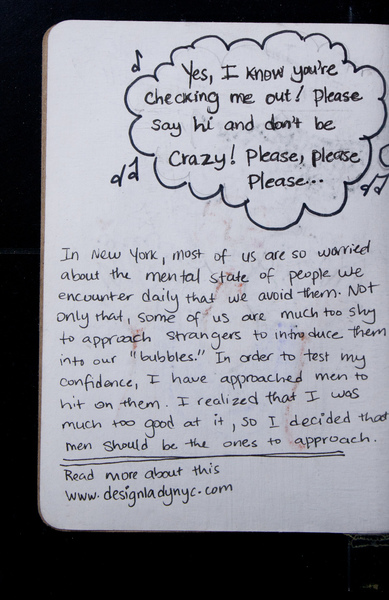 Yes, I know you're
checking me out! Please
say hi and don't be
Crazy! Please, please
Please...
In New York, most of us are so worried
about the mental state of people we
encounter daily that we avoid them. Not
only that, some of us are much too shy
to approach strangers to introduce them
into our "bubbles." In order to test my
confidence, I have approached men to
hit on them. I realized that I was
much too good at it, so I decided that
men should be the ones to approach.
Read more about this
www.designladynyc.com